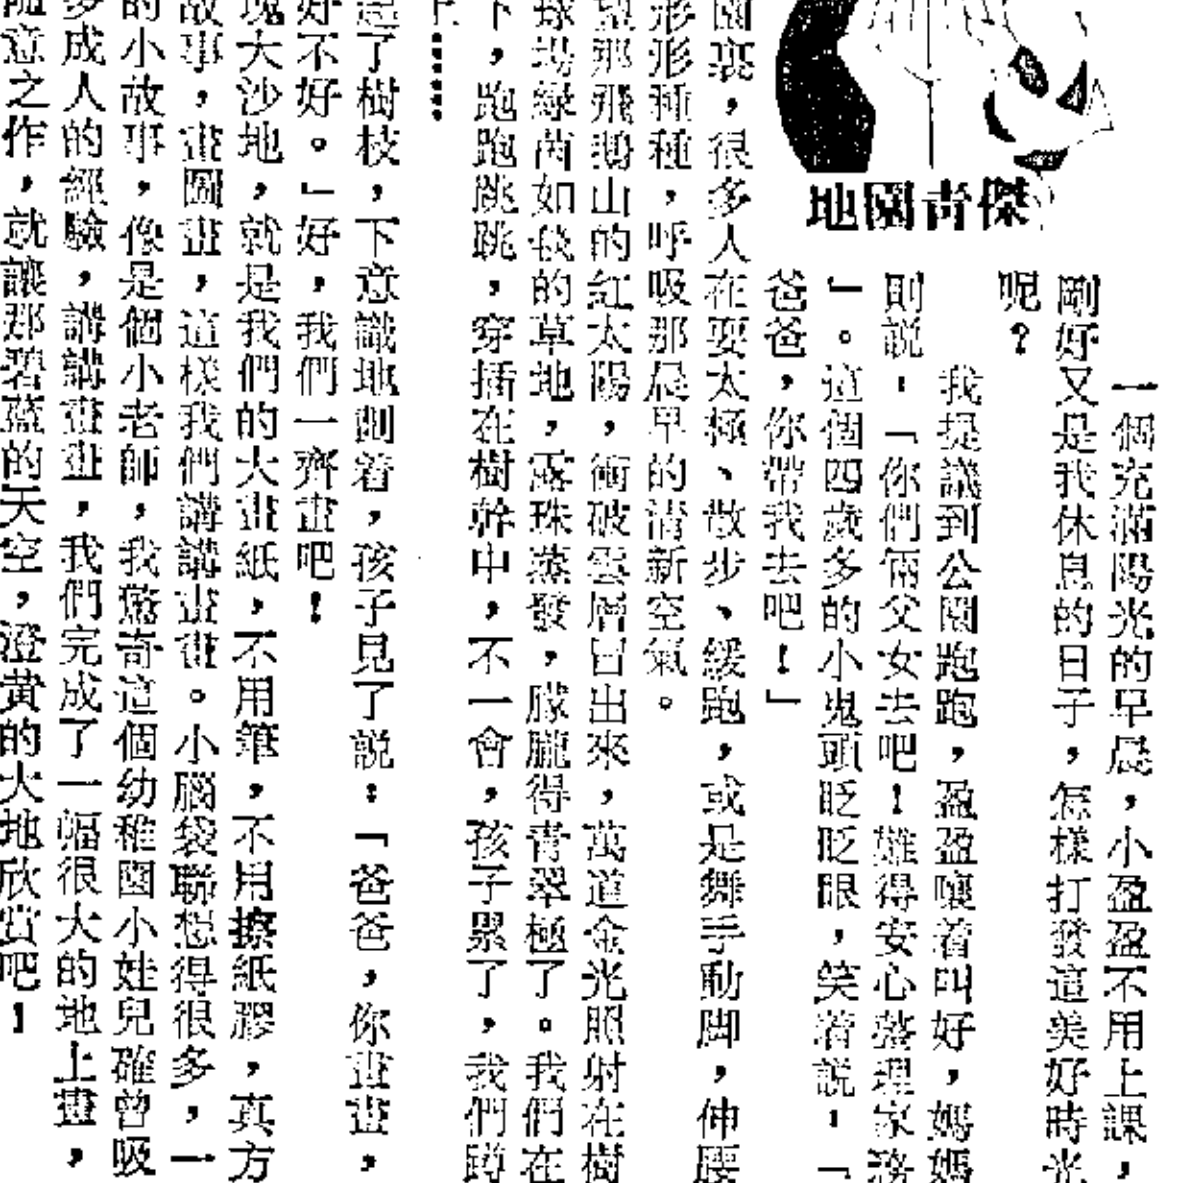 地園青傑
一個充滿陽光的早晨，小盈盈不用上課，
剛好又是我休息的日子，怎樣打發這美好時光
呢？
我提議到公園跑跑，盈盈嚷着叫好，媽媽
則説：「你們倆父女去吧！難得安心落理家務
」。這個四歲多的小鬼頭眨眨眼，笑着説：「
爸爸，你帶我去吧！」
園裏，很多人在耍太極、散步、緩跑，或是舞手動脚，伸腰
形形種種，呼吸那晨早的清新空氣。
望那飛鵝山的紅太陽，衝破雲層冒出來，萬道金光照射在樹
球場綠茵如毯的草地，露珠蒸發，朦朧得青翠極了。我們在
下，跑跑跳跳，穿插在樹幹中，不一會，孩子累了，我們蹲
上……
起了樹枝，下意識地劃着，孩子見了説：「爸爸，你畫畫，
好不好。」好，我們一齊畫吧！
塊大沙地，就是我們的大畫紙，不用筆，不用擦紙膠，真方
故事，畫圖畫，這樣我們講講畫畫。小腦袋聯想得很多，一
的小故事，像是個小老師，我驚奇這個幼稚園小娃兒確曾吸
多成人的經驗，講講畫畫，我們完成了一幅很大的地上畫，
隨意之作，就讓那碧藍的天空，澄黃的大地欣賞吧！